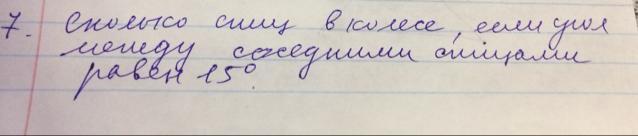 7. Сколько спиц в колесе, если угол
между соседними спицами
равен 15°.